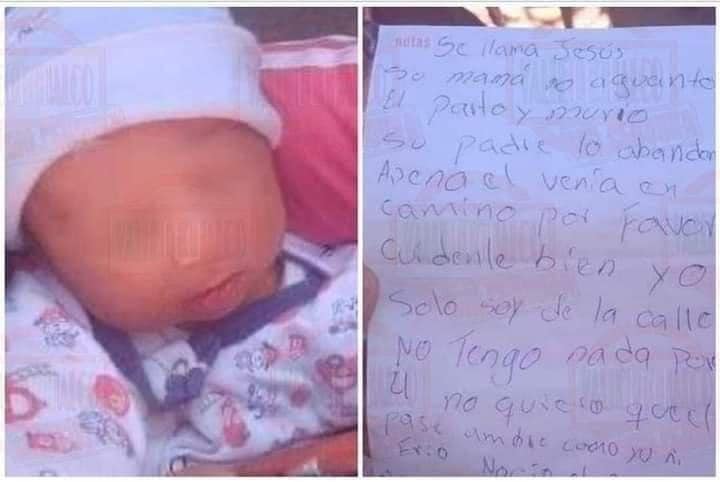 notas Se llama Jesús
Su mamá no aguanto
El parto y murio
Su padre lo abandon
Apena el venía en
camino por Favor
Cuidenle bien yo
Solo soy de la calle
No Tengo nada por
El no quiero que el
pase ambre como yo ni
Frio Nacio el